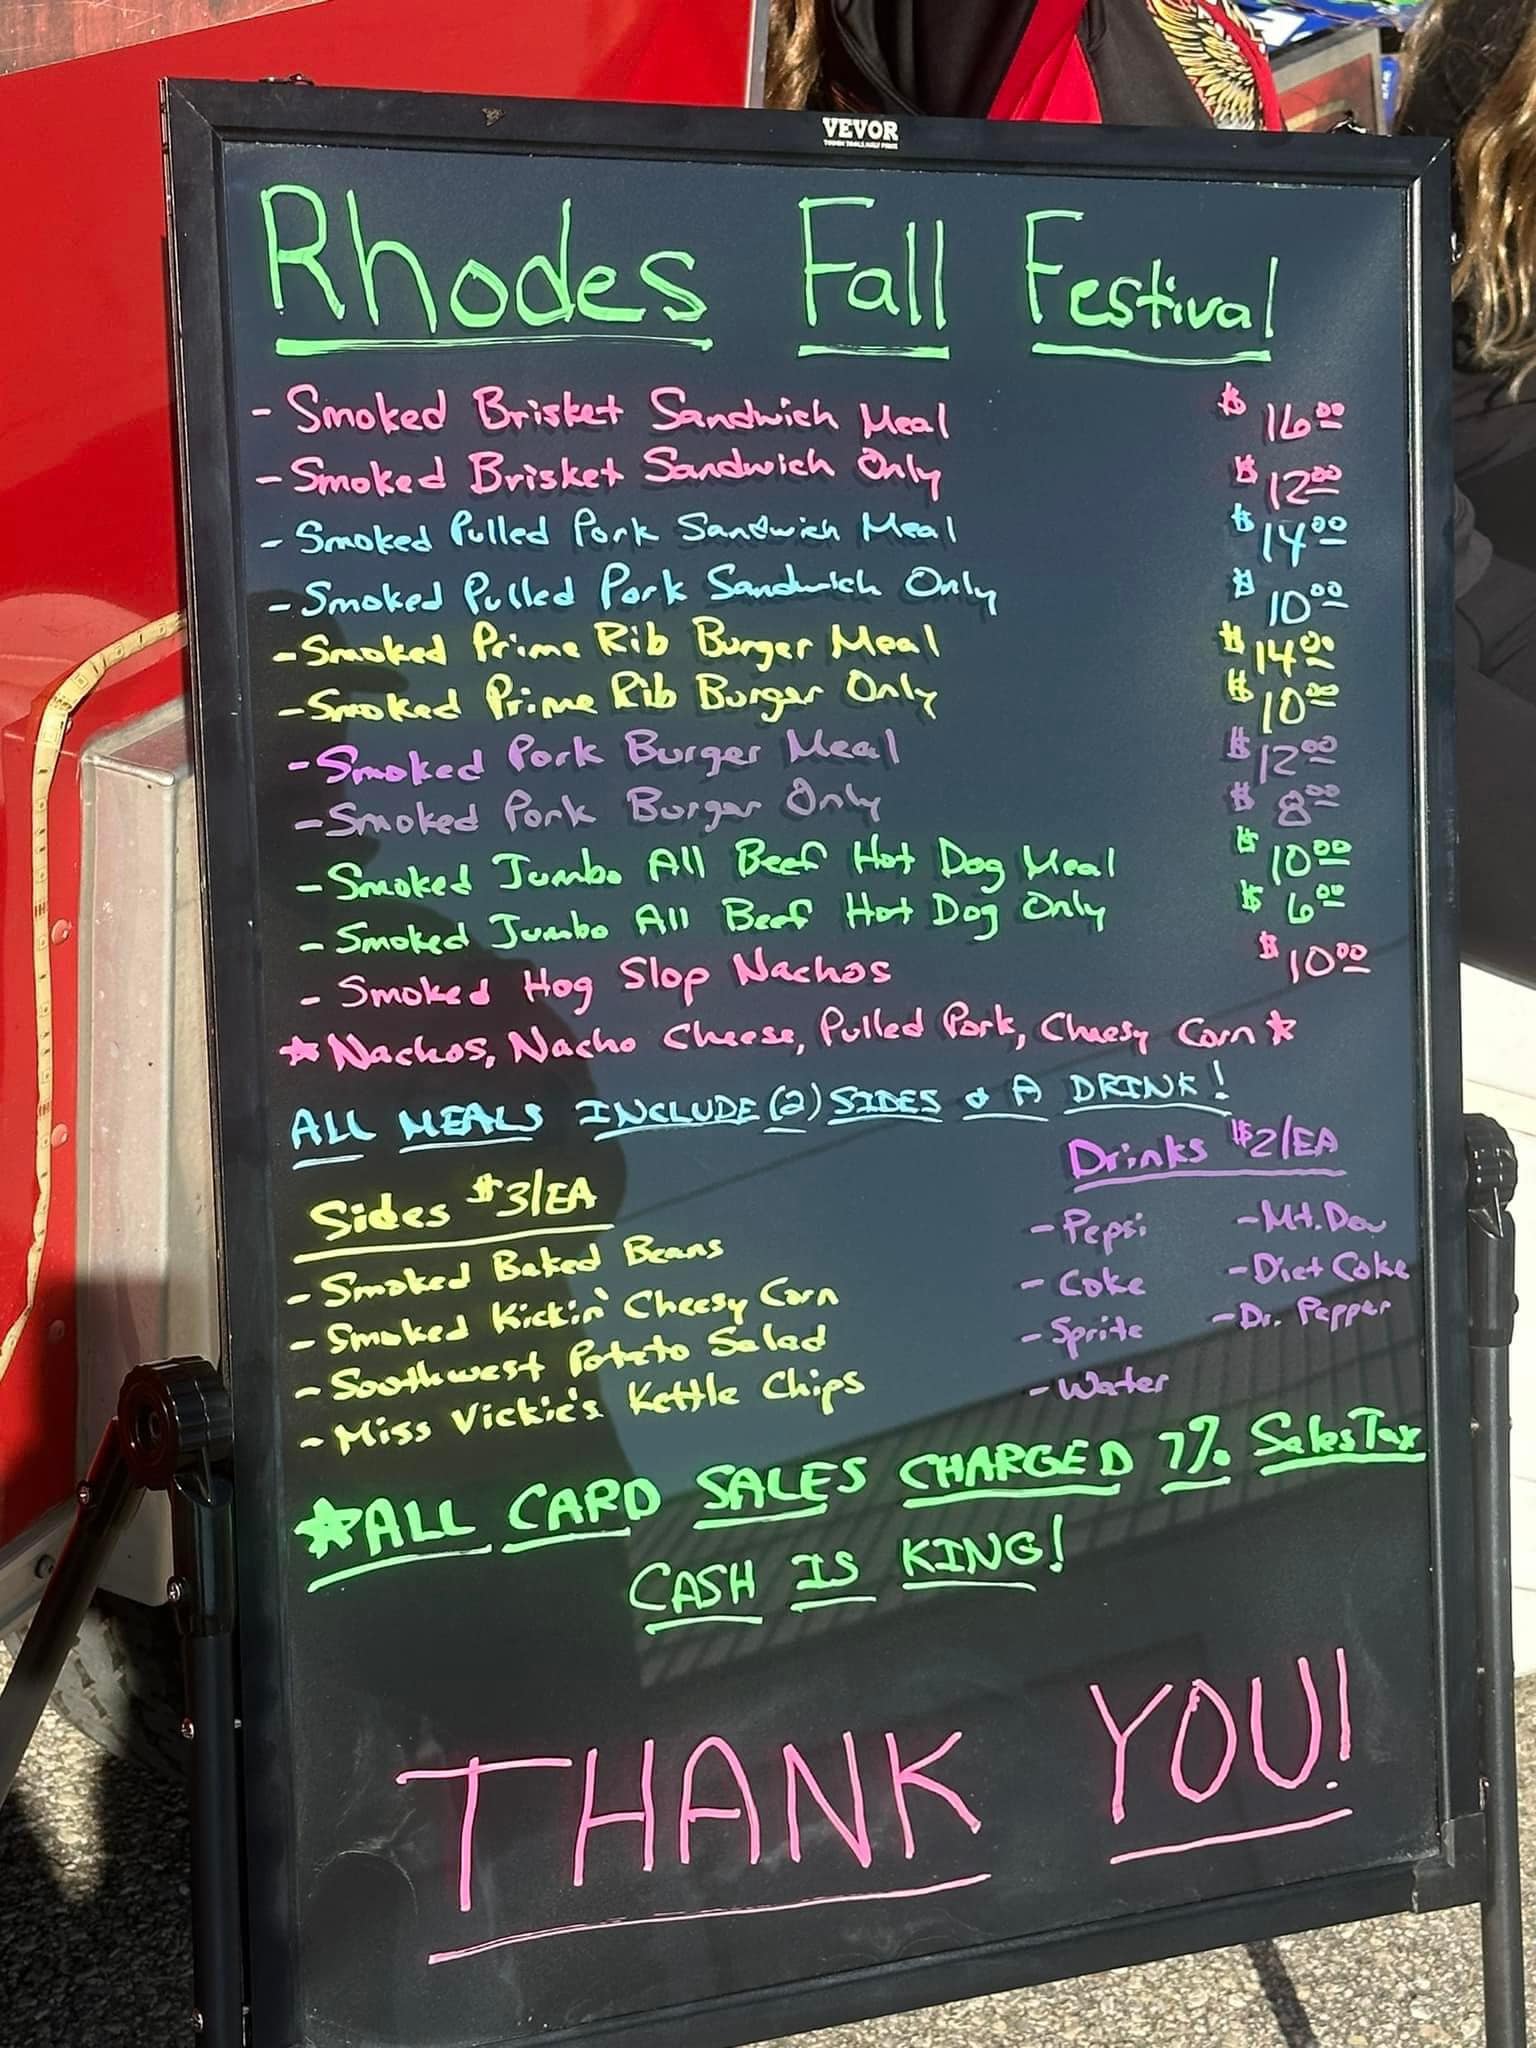 VEVOR
TOUGH TOOLS, HALF PRICE
Rhodes Fall Festival
- Smoked Brisket Sandwich Meal $16.00
- Smoked Brisket Sandwich Only $12.00
- Smoked Pulled Pork Sandwich Meal $14.00
- Smoked Pulled Pork Sandwich Only $10.00
- Smoked Prime Rib Burger Meal $14.00
- Smoked Prime Rib Burger Only $10.00
- Smoked Pork Burger Meal $12.00
- Smoked Pork Burger Only $8.00
- Smoked Jumbo All Beef Hot Dog Meal $10.00
- Smoked Jumbo All Beef Hot Dog Only $6.00
- Smoked Hog Slop Nachos $10.00
★ Nachos, Nacho Cheese, Pulled Pork, Cheesy Corn ★
ALL MEALS INCLUDE (2) SIDES & A DRINK!
Sides $3/EA
- Smoked Baked Beans
- Smoked Kickin' Cheesy Corn
- Southwest Potato Salad
- Miss Vickie's Kettle Chips
Drinks $2/EA
- Pepsi - Mt. Dew
- Coke - Diet Coke
- Sprite - Dr. Pepper
- Water
★ ALL CARD SALES CHARGED 7% Sales Tax
CASH IS KING!
THANK YOU!